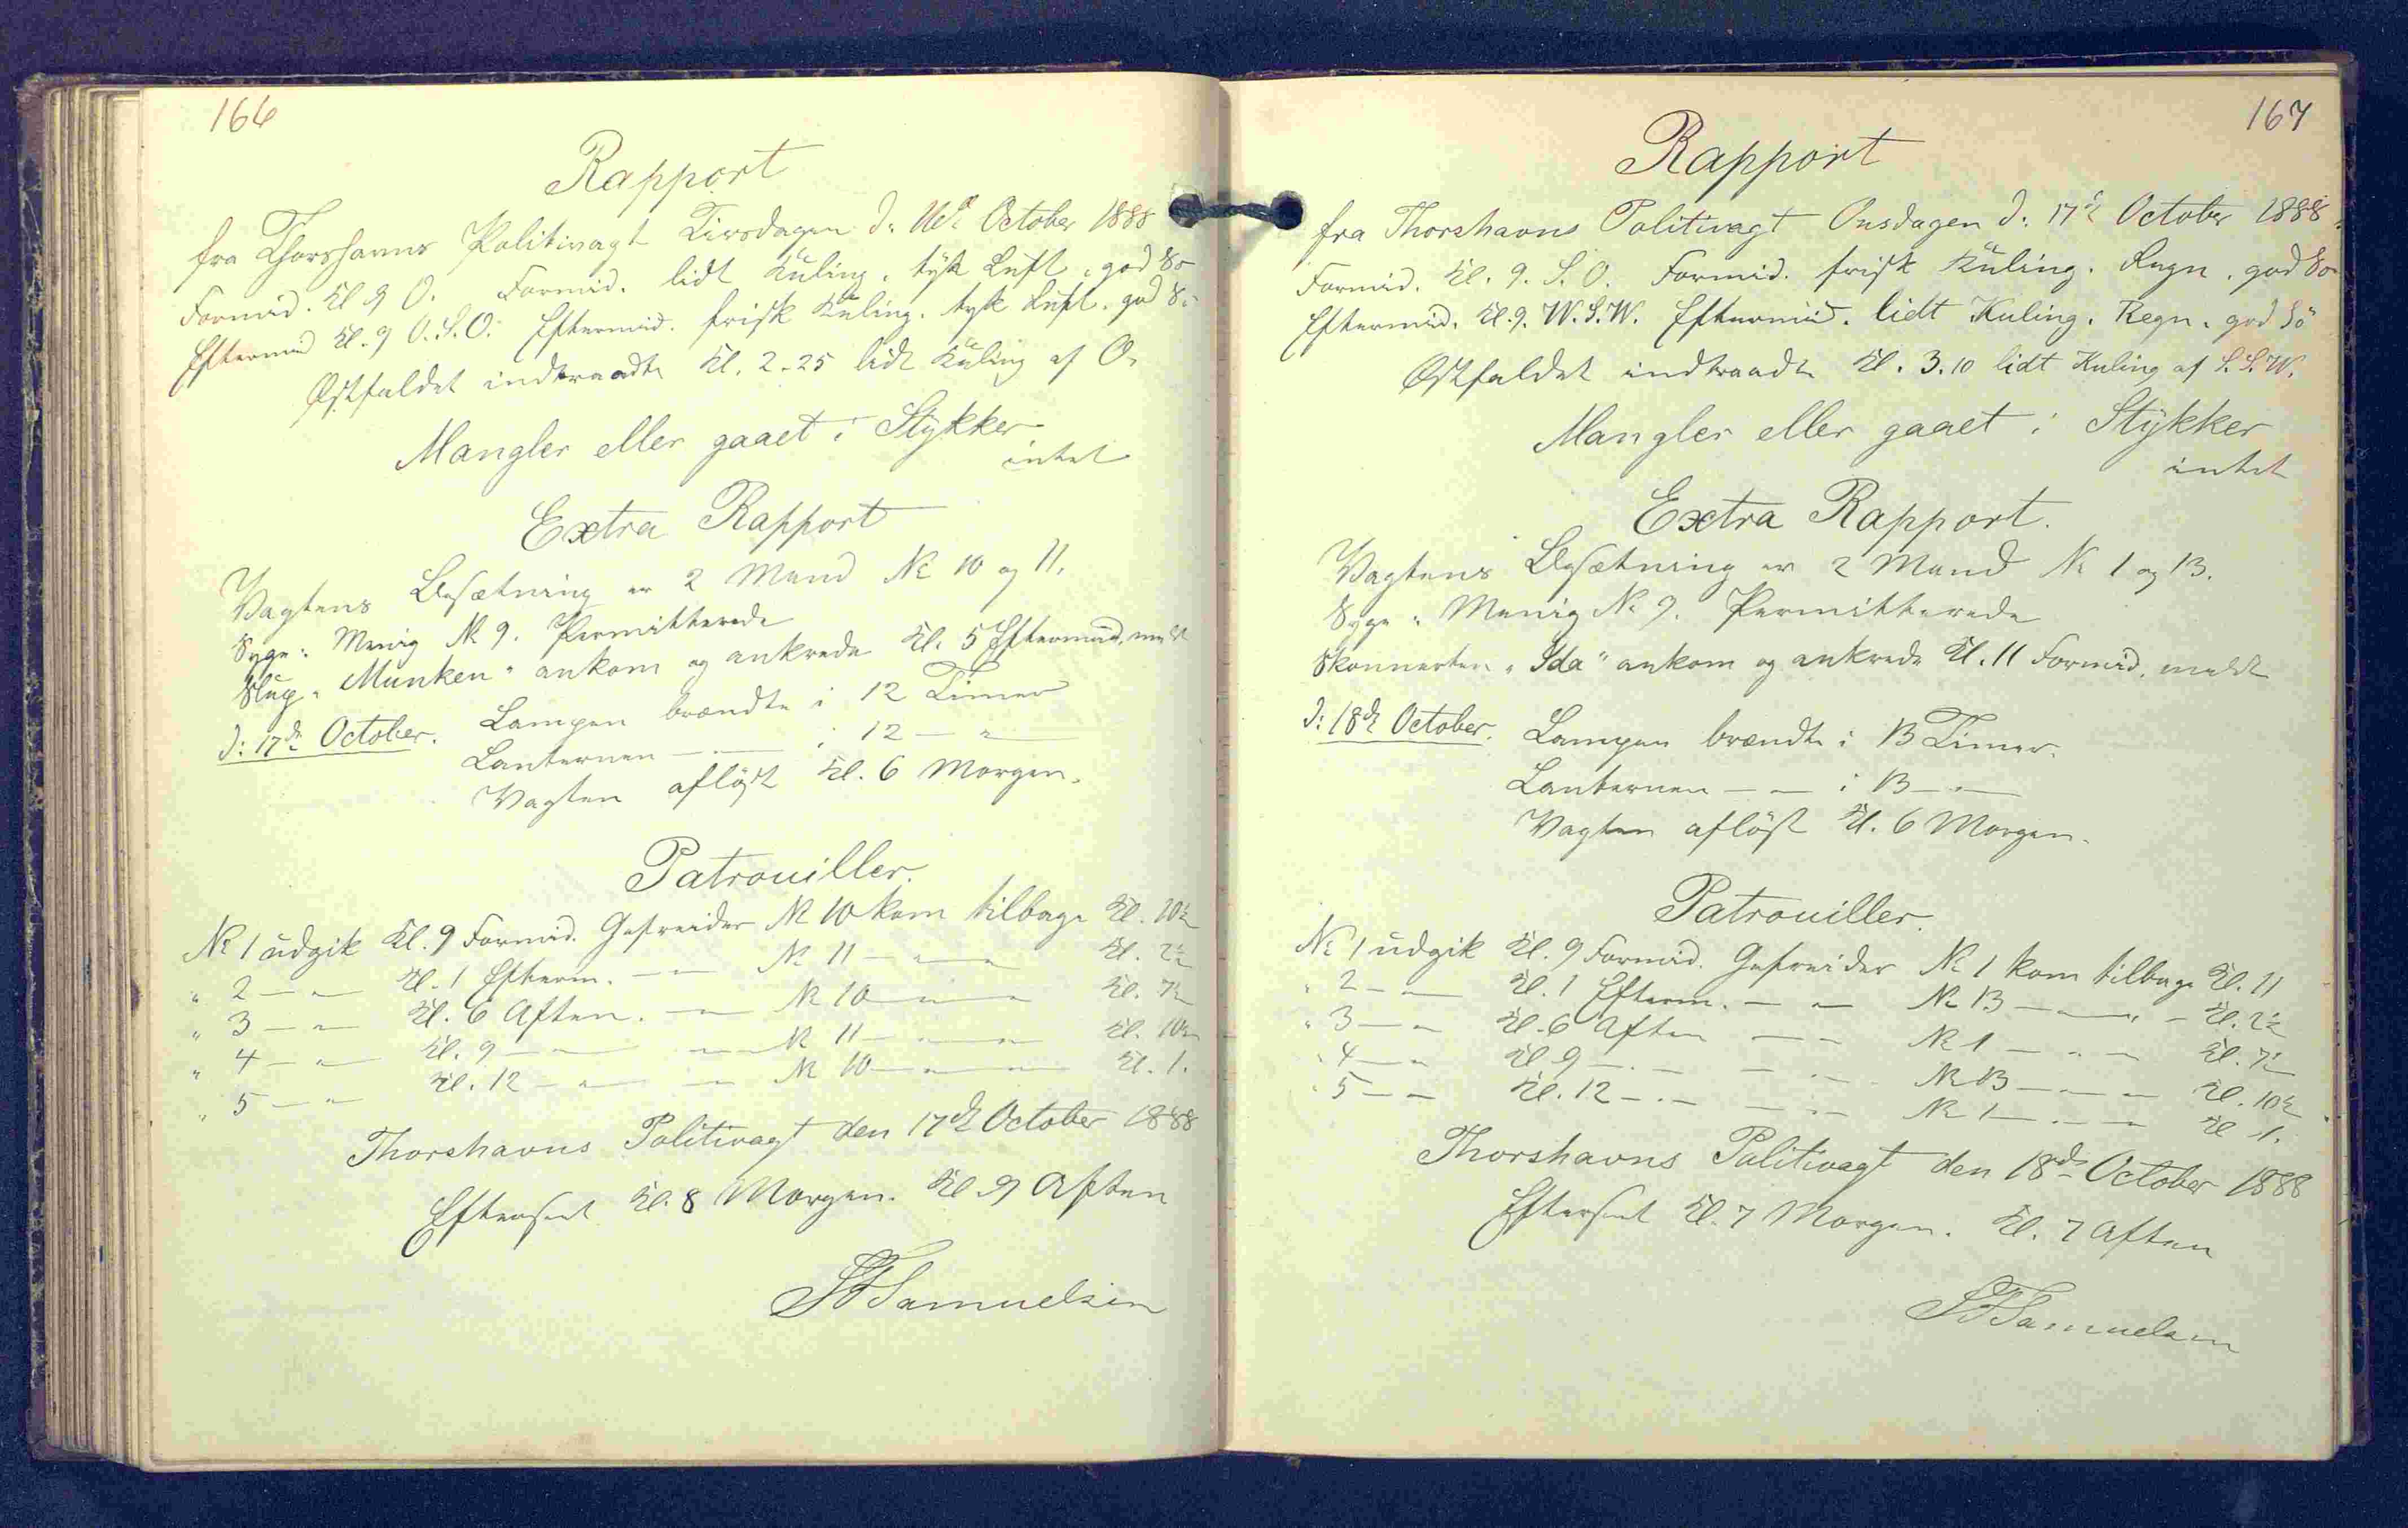 166
Rapport
fra Thorshavns Politivagt Tirsdagen d: 16de October 1888
Formid. Kl 9 O. Formid. lidt Kuling, tyk Luft, god Sö
Eftermid Kl. 9 O.S.O. Eftermid. frisk Kuling. tyk Luft. god Sö
Østfaldet indtraadte Kl. 2.25 lidt Kuling af O.
Mangler eller gaaet i Stykker
intet
Extra Rapport
Vagtens Besætning er 2 Mand No 10 og 11.
Syge: Menig No 9. Permitterede
Slup "Munken" ankom og ankrede Kl. 5 Eftermid. meldt
d: 17de October. Lampen brændte i 12 Timer
Lanternen — — i 12 — " —
Vagten aflöst Kl. 6 Morgen.
Patrouiller.
No 1 udgik Kl. 9 Formid. Gefreider No 10 kom tilbage Kl. 10½
" 2 — " — Kl. 1 Efterm. — " — No 11 — " — " — Kl. 2½
" 3 — " — Kl. 6 Aften. — " — No 10 — " — " — Kl. 7½
" 4 — " — Kl. 9 — " — — " — No 11 — " — " — Kl. 10½
" 5 — " — Kl. 12 — " — — " — No 10 — " — " — Kl. 1.
Thorshavns Politivagt den 17de October 1888
Efterset Kl. 8 Morgen. Kl. 9 Aften
Samuelsen
167
Rapport
fra Thorshavns Politivagt Onsdagen d: 17de October 1888
Formid. Kl. 9. S.O. Formid. frisk Kuling. Regn. god Sö
Eftermid. Kl. 9. W.S.W. Eftermid. lidt Kuling. Regn. god Sö
Østfaldet indtraadte Kl. 3.10 lidt Kuling af S.S.W.
Mangler eller gaaet i Stykker
intet
Extra Rapport.
Vagtens Besætning er 2 Mand No 1 og 13.
Syge: Menig No 9. Permitterede
Skonnerten "Ida" ankom og ankrede Kl. 11 Formid. meldt
d: 18de October. Lampen brændte i 13 Timer.
Lanternen — — i 13 — " —
Vagten aflöst Kl. 6 Morgen.
Patrouiller.
No 1 udgik Kl. 9 Formid. Gefreider No 1 kom tilbage Kl. 11
" 2 — " — Kl. 1 Efterm. — " — No 13 — " — " — Kl. 2½
" 3 — " — Kl. 6 Aften — " — No 1 — " — " — Kl. 7½
" 4 — " — Kl. 9 — " — — " — No 13 — " — " — Kl. 10½
" 5 — " — Kl. 12 — " — — " — No 1 — " — " — Kl 1.
Thorshavns Politivagt den 18de October 1888
Efterset Kl. 7 Morgen. Kl. 7 Aften
Samuelsen